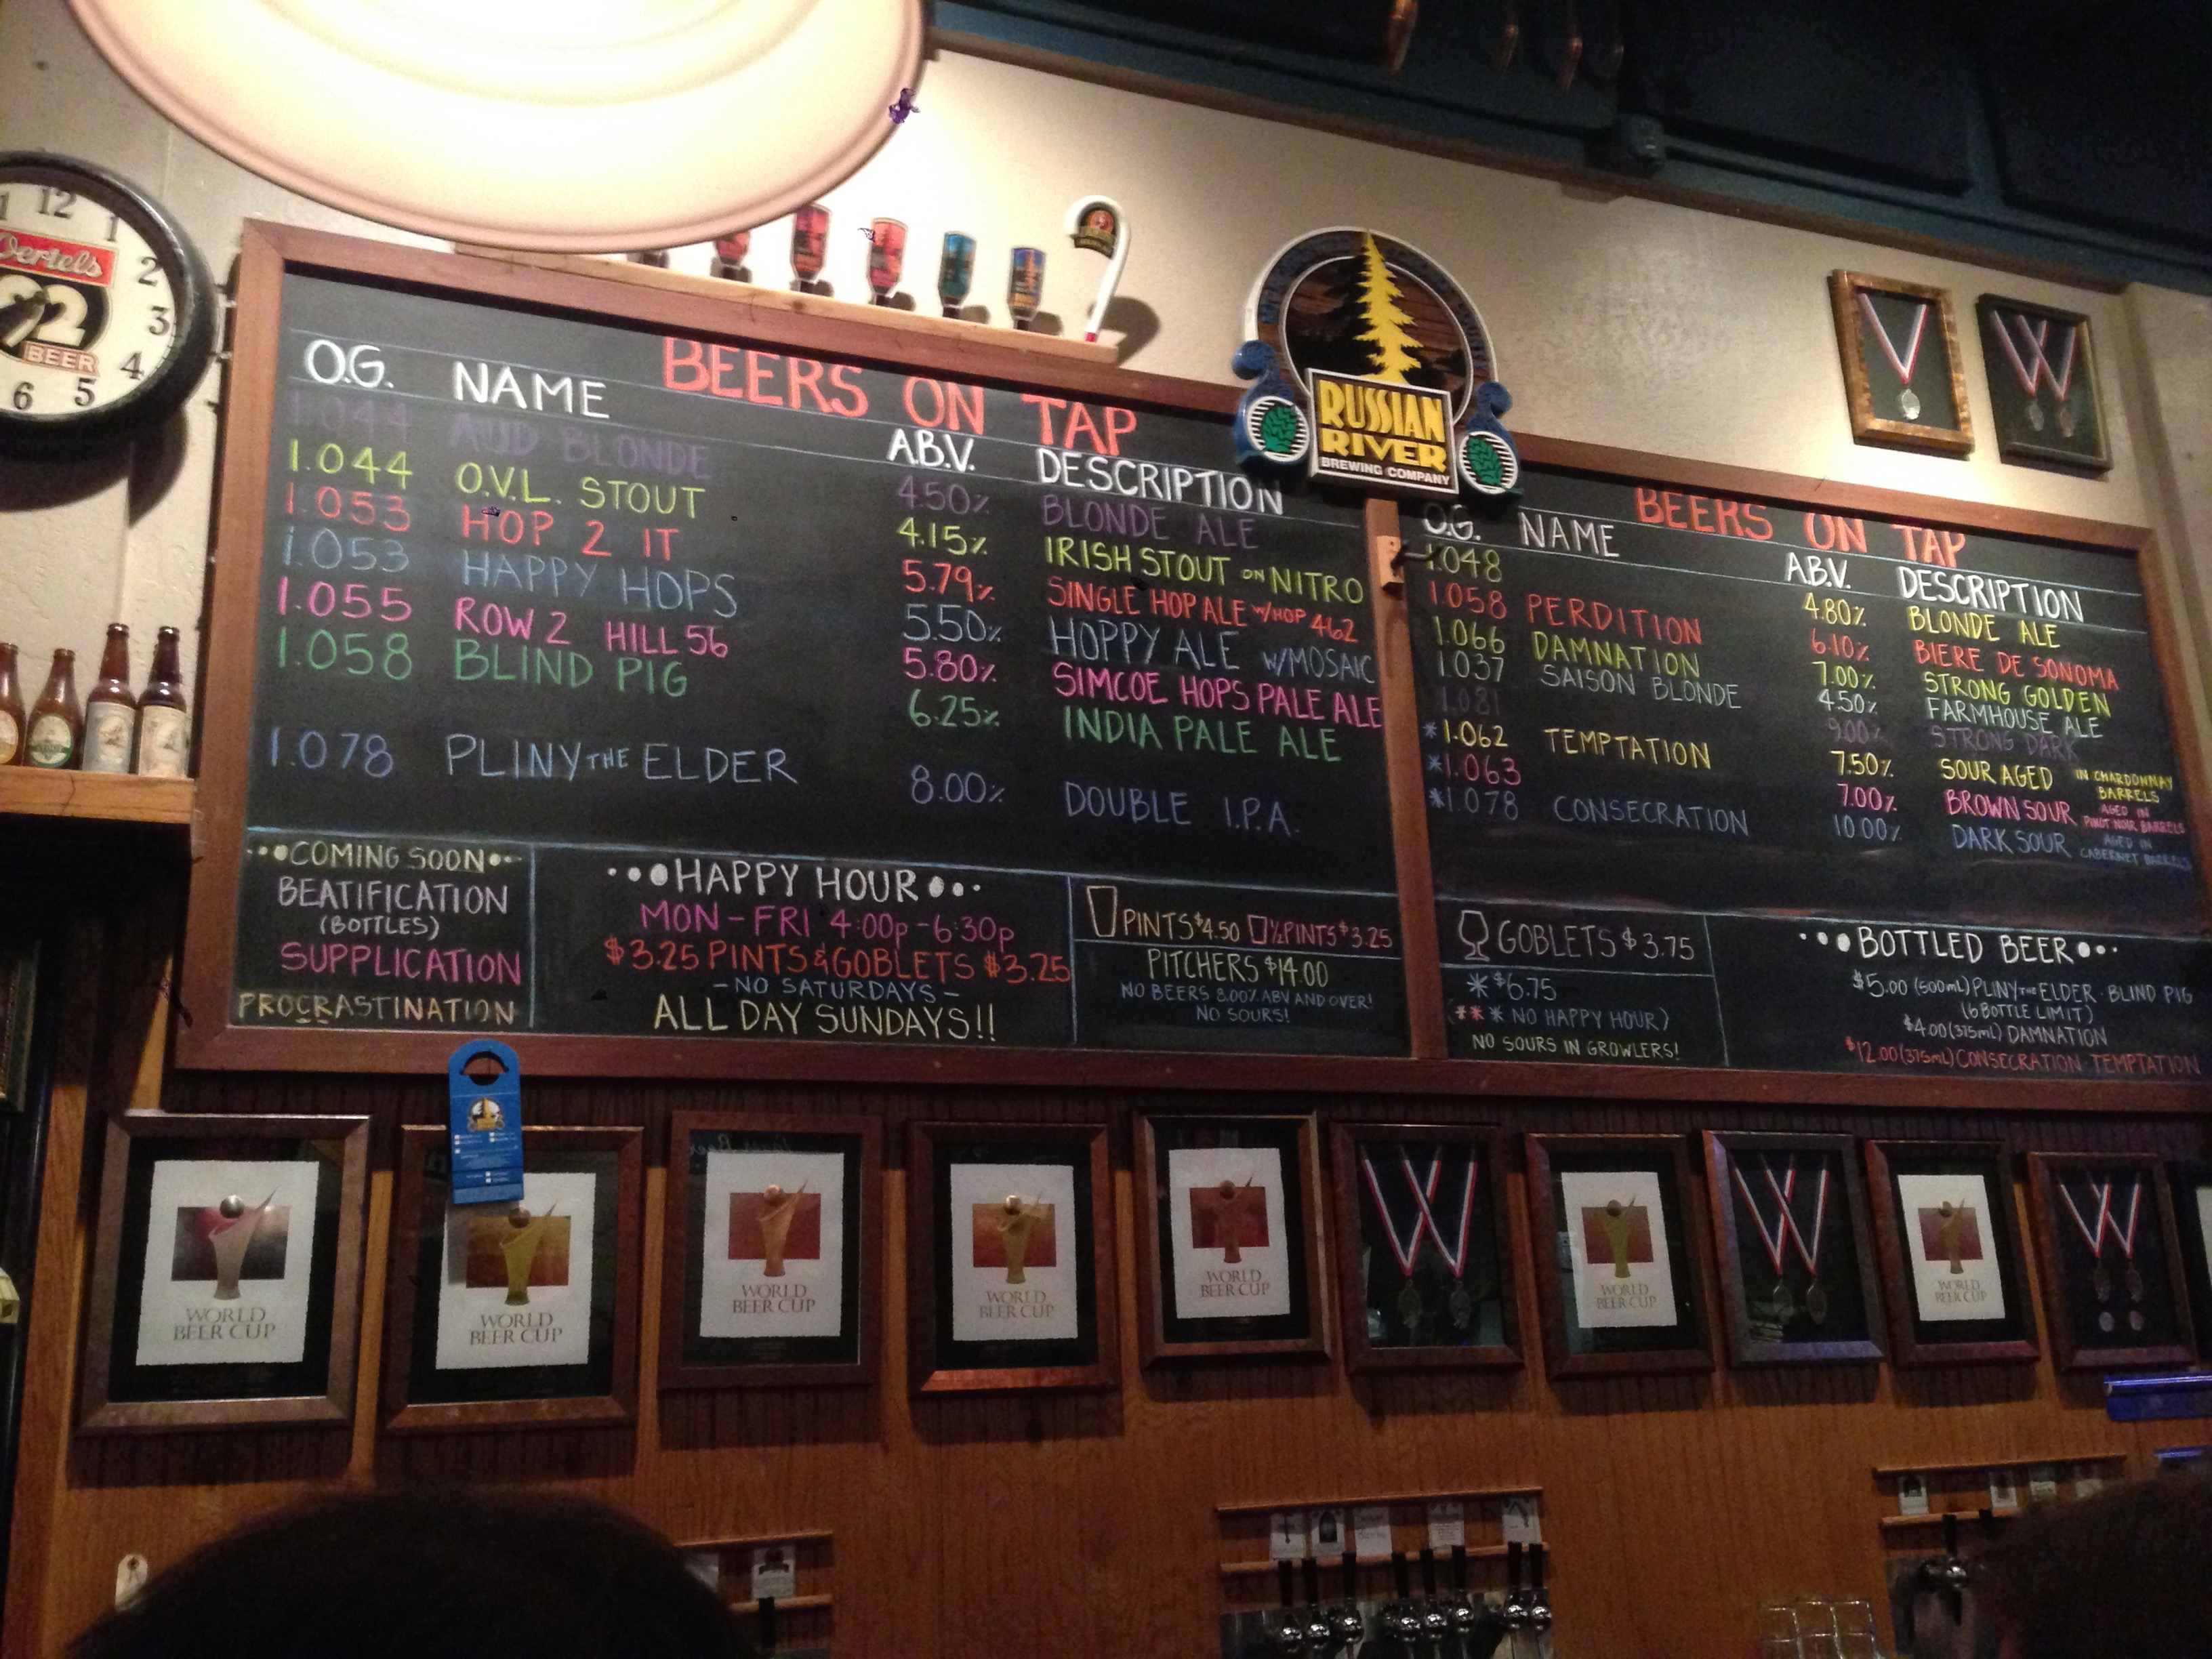 12
1
2
3
4
5
6
Oertels
92
BEER
BEERS ON TAP
O.G. NAME A.B.V. DESCRIPTION
1.044 AUD BLONDE 4.50% BLONDE ALE
1.044 O.V.L. STOUT 4.15% IRISH STOUT ON NITRO
1.053 HOP 2 IT 5.79% SINGLE HOP ALE W/HOP 462
1.053 HAPPY HOPS 5.50% HOPPY ALE W/MOSAIC
1.055 ROW 2 HILL 56 5.80% SIMCOE HOPS PALE ALE
1.058 BLIND PIG 6.25% INDIA PALE ALE
1.078 PLINY THE ELDER 8.00% DOUBLE I.P.A.
COMING SOON
BEATIFICATION
(BOTTLES)
SUPPLICATION
PROCRASTINATION
HAPPY HOUR
MON-FRI 4:00p-6:30p
$3.25 PINTS & GOBLETS $3.25
-NO SATURDAYS-
ALL DAY SUNDAYS!!
PINTS $4.50 ½ PINTS $3.25
PITCHERS $14.00
NO BEERS 8.00% ABV AND OVER!
NO SOURS!
RUSSIAN
RIVER
BREWING COMPANY
BEERS ON TAP
O.G. NAME A.B.V. DESCRIPTION
1.048 4.80% BLONDE ALE
1.058 PERDITION 6.10% BIERE DE SONOMA
1.066 DAMNATION 7.00% STRONG GOLDEN
1.037 SAISON BLONDE 4.50% FARMHOUSE ALE
1.081 9.00% STRONG DARK
*1.062 TEMPTATION 7.50% SOUR AGED IN CHARDONNAY BARRELS
*1.063 7.00% BROWN SOUR AGED IN PINOT NOIR BARRELS
*1.078 CONSECRATION 10.00% DARK SOUR AGED IN CABERNET BARRELS
GOBLETS $3.75
* $6.75
(*** NO HAPPY HOUR)
NO SOURS IN GROWLERS!
BOTTLED BEER
$5.00 (500mL) PLINY THE ELDER · BLIND PIG
(6 BOTTLE LIMIT)
$4.00 (375mL) DAMNATION
$12.00 (375mL) CONSECRATION TEMPTATION
WORLD
BEER CUP
WORLD
BEER CUP
WORLD
BEER CUP
WORLD
BEER CUP
WORLD
BEER CUP
WORLD
BEER CUP
WORLD
BEER CUP